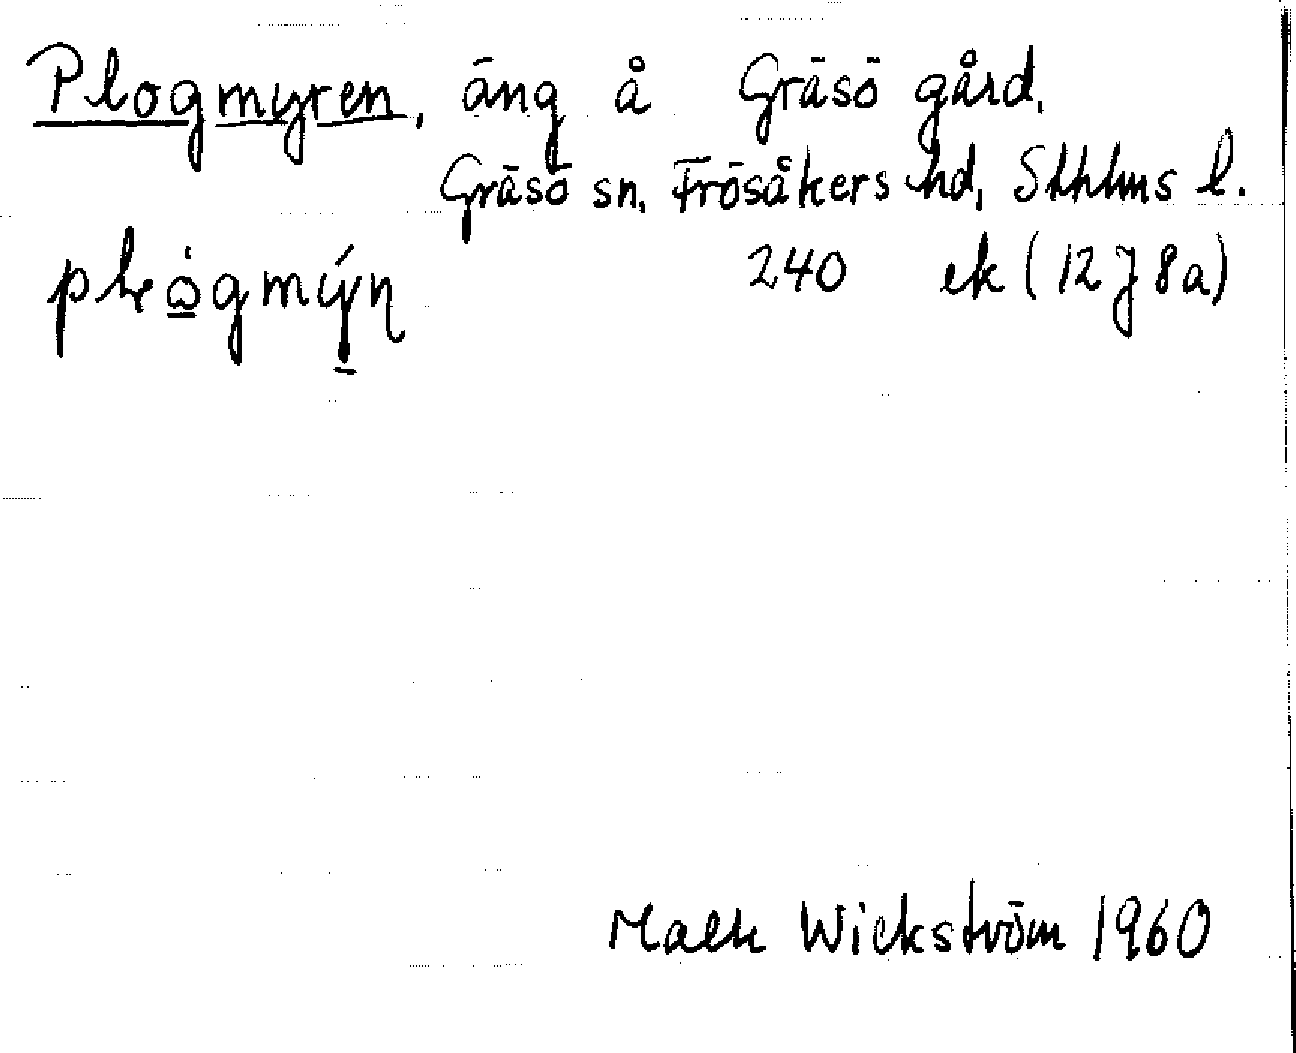 Plogmyren, äng å Gräsö gård,
Gräsö sn, Frösåkers hd, Sthlms l.
plɷ̀gmýn 240 ek (12J8a)
Wickström 1960